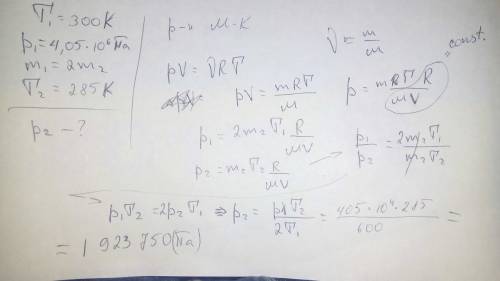 T₁ = 300K
p₁ = 4,05·10⁶ Па
m₁ = 2m₂
T₂ = 285K
p₂ – ?
р-и М-К
pV = νRT
pV = mRT/M
ν = m/M
p = mT R/MV
const.
p₁ = 2m₂T₁ R/MV
p₂ = m₂T₂ R/MV
p₁/p₂ = 2m₂T₁/m₂T₂
p₁T₂ = 2p₂T₁ ⇒ p₂ = p₁T₂/2T₁ = 405·10⁴·285/600 =
= 1 923 750 (Па)